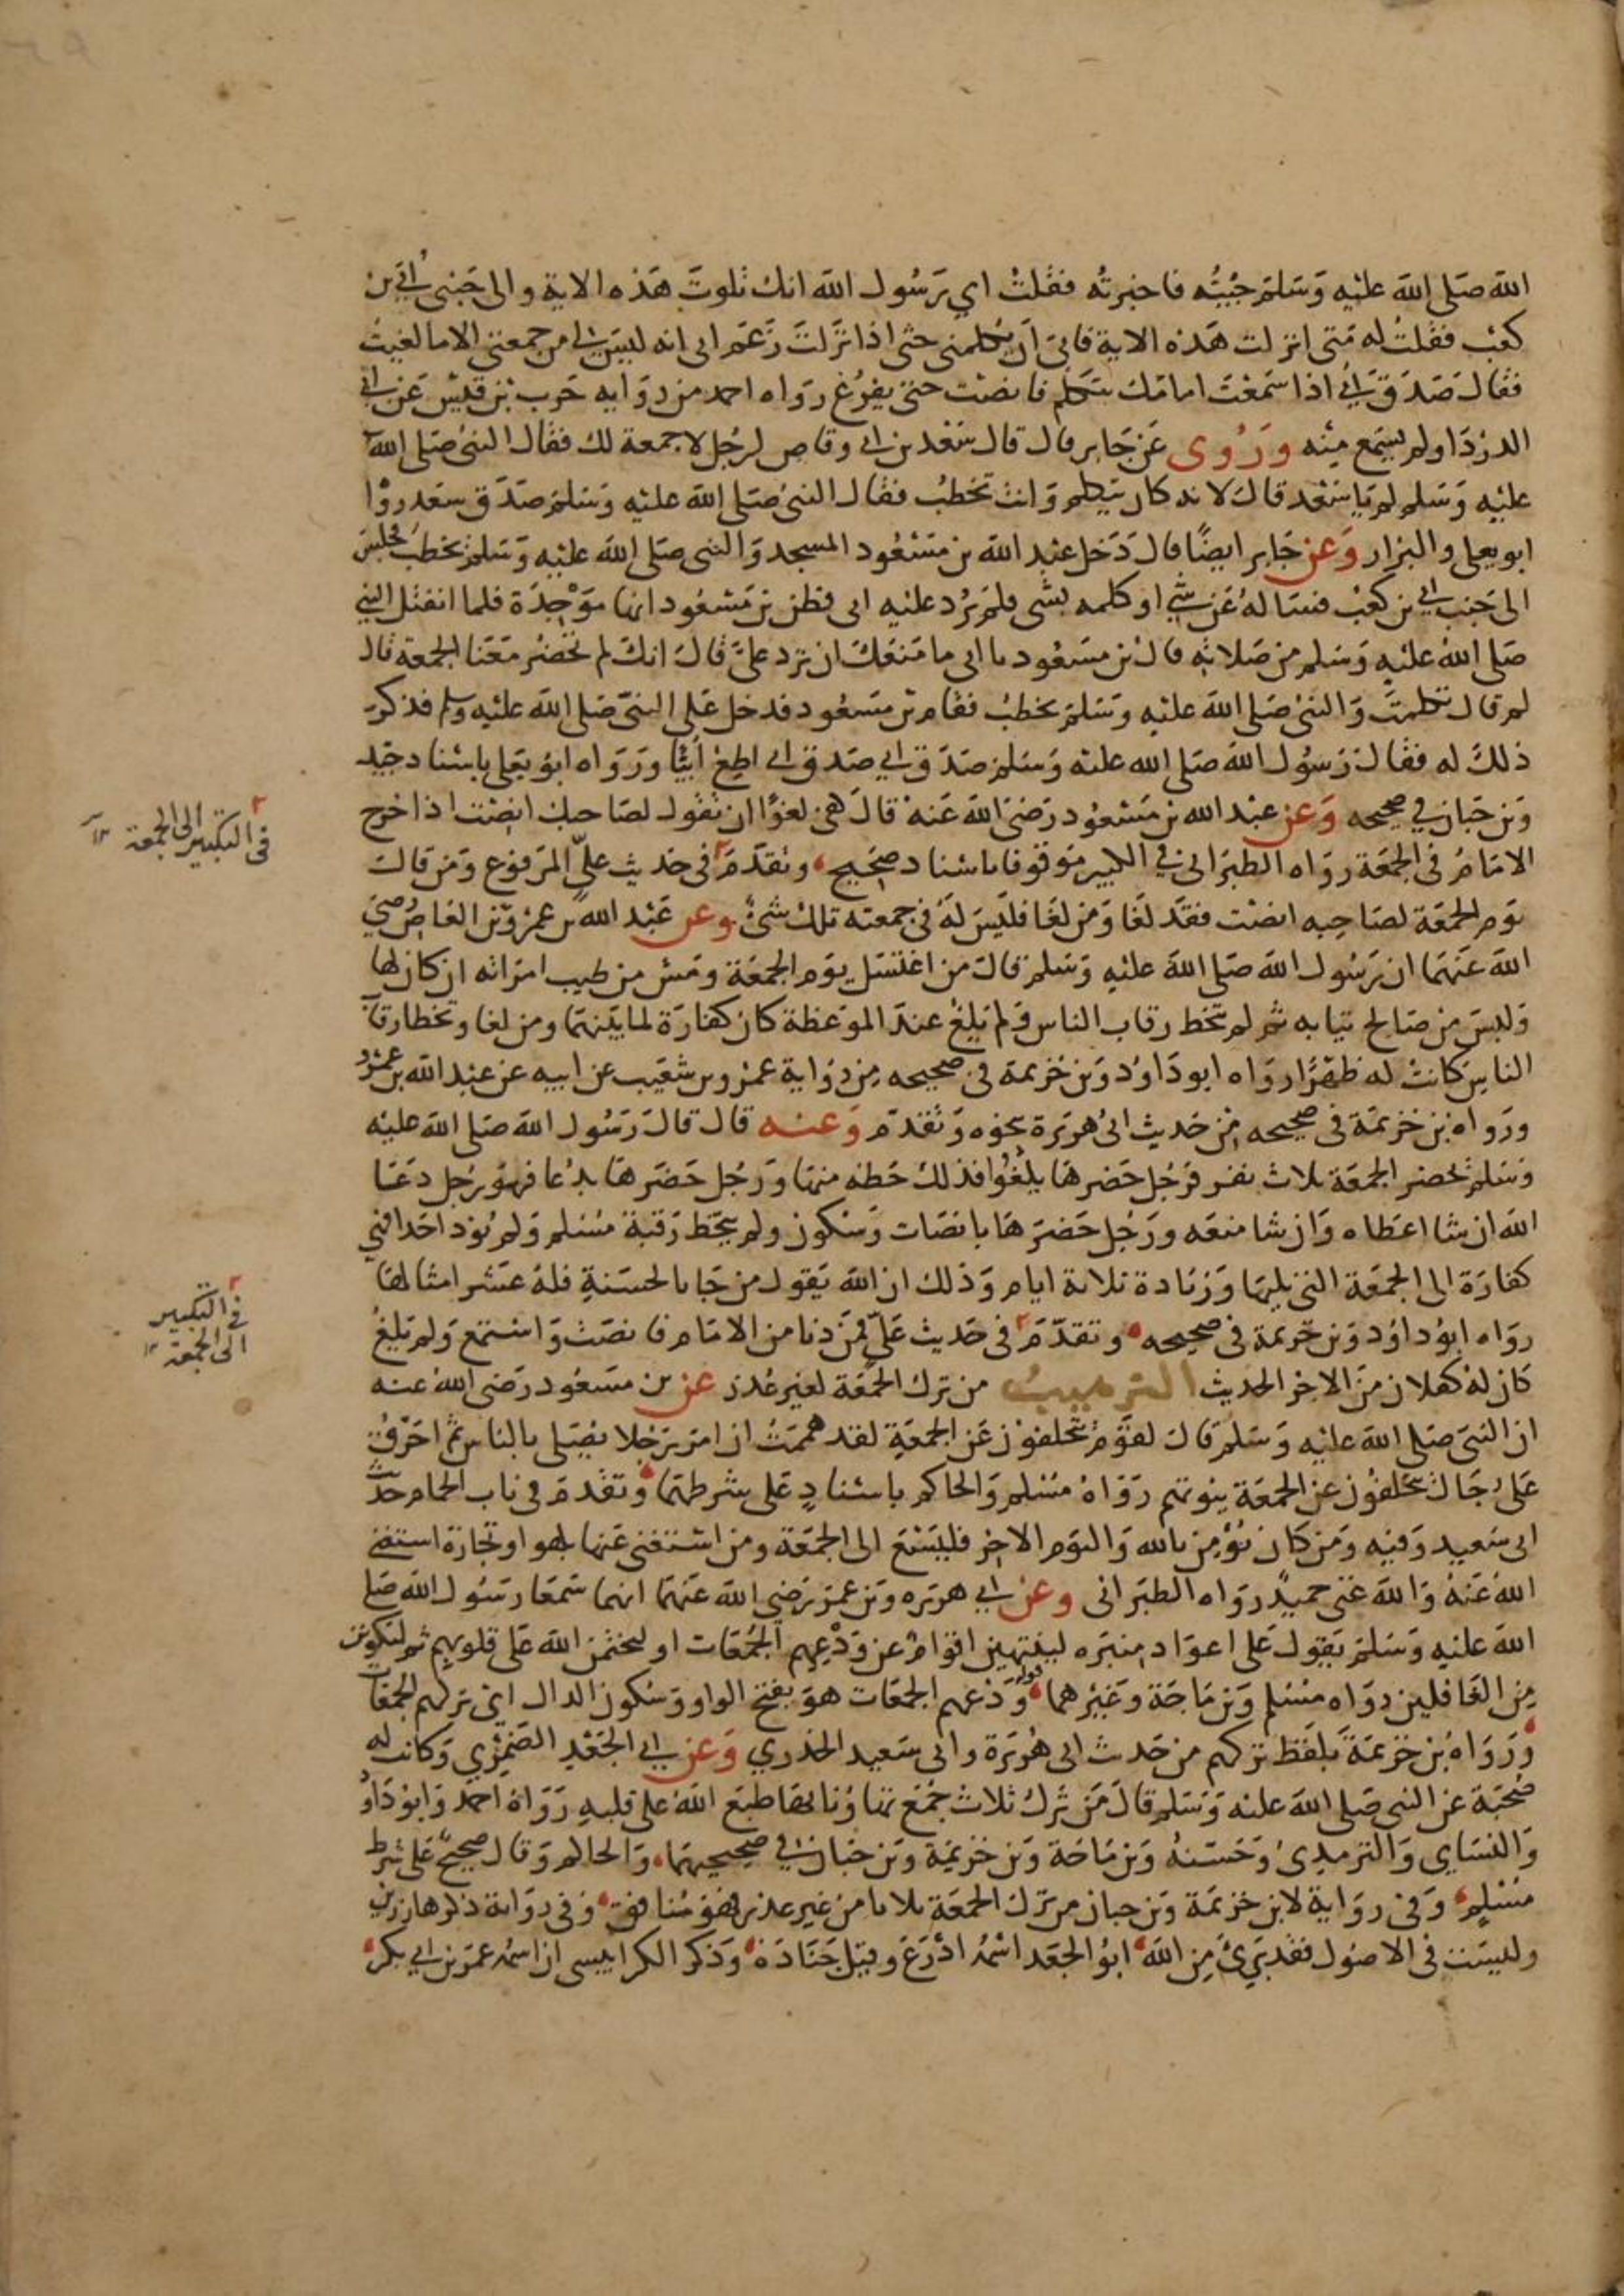 الله صلى الله عليه وسلم جيته فاخبرته فقلت اي رسول الله انك تلوت هذه الاية والى جنبي ابي بن
كعب فقلت له متى انزلت هذه الاية فابى ان يكلمني حتى اذا نزلت زعم ابي انه ليس لي من جمعتي الا ما لغيت
فقال صدق ابي اذا سمعت امامك يتكلم فانصت حتى يفرغ رواه احمد من رواية حرب بن قيس عن ابي
الدردا ولم يسمع منه وروى عن جابر قال قال سعد بن ابي وقاص لرجل لا جمعة لك فقال النبي صلى الله
عليه وسلم لم يا سعد قال لانه كان يتكلم وانت تخطب فقال النبي صلى الله عليه وسلم صدق سعد رواه
ابو يعلى والبزار وعن جابر ايضا قال دخل عبد الله بن مسعود المسجد والنبي صلى الله عليه وسلم يخطب فجلس
الى جنب ابي بن كعب فساله عن شي او كلمه بشي فلم يرد عليه ابي فظن بن مسعود انها موجدة فلما انفتل النبي
صلى الله عليه وسلم من صلاته قال بن مسعود يا ابي ما منعك ان ترد علي قال انك لم تحضر معنا الجمعة قال
لم قال تكلمت والنبي صلى الله عليه وسلم يخطب فقام بن مسعود فدخل على النبي صلى الله عليه وسلم فذكر
ذلك له فقال رسول الله صلى الله عليه وسلم صدق ابي صدق ابي اطع ابيا ورواه ابو يعلى باسناد جيد
وبن حبان في صحيحه وعن عبد الله بن مسعود رضي الله عنه قال هي لغوا ان تقول لصاحبك انصت اذا خرج
الامام في الجمعة رواه الطبراني في الكبير موقوفا باسناد صحيح وتقدم في حديث علي المرفوع ومن قال
يوم الجمعة لصاحبه انصت فقد لغا ومن لغا فليس له في جمعته تلك شي وعن عبد الله بن عمرو بن العاص رضي
الله عنهما ان رسول الله صلى الله عليه وسلم قال من اغتسل يوم الجمعة ومس من طيب امراته ان كان لها
ولبس من صالح ثيابه ثم لم يتخط رقاب الناس ولم يلغ عند الموعظة كان كفارة لما بينهما ومن لغا وتخطا رقاب
الناس كانت له ظهرا رواه ابو داود وبن خزيمة في صحيحه من رواية عمرو بن شعيب عن ابيه عن عبد الله بن عمرو
ورواه بن خزيمة في صحيحه من حديث ابي هريرة بنحوه وتقدم وعنه قال قال رسول الله صلى الله عليه
وسلم تحضر الجمعة ثلاث نفر فرجل حضرها يلغوا فذلك حظه منها ورجل حضرها بدعا فهو رجل دعا
الله ان شا اعطاه وان شا منعه ورجل حضرها بانصات وسكون ولم يتخط رقبة مسلم ولم يوذ احدا فهي
كفارة الى الجمعة التي يليها وزيادة ثلاثة ايام وذلك ان الله يقول من جا بالحسنة فله عشر امثالها
رواه ابو داود وبن خزيمة في صحيحه وتقدم في حديث علي فمن دنا من الامام فانصت واستمع ولم يلغ
كان له كفلان من الاجر الحديث الترهيب من ترك الجمعة لغير عذر عن بن مسعود رضي الله عنه
ان النبي صلى الله عليه وسلم قال لقوم يتخلفون عن الجمعة لقد هممت ان امر رجلا يصلي بالناس ثم احرق
على رجال يتخلفون عن الجمعة بيوتهم رواه مسلم والحاكم باسناد على شرطهما وتقدم في باب الحمام حديث
ابي سعيد وفيه ومن كان يؤمن بالله واليوم الاخر فليسع الى الجمعة ومن استغنى عنها بلهو او تجارة استغنى
الله عنه والله غني حميد رواه الطبراني وعن ابي هريره وبن عمر رضي الله عنهما انهما سمعا رسول الله صلى
الله عليه وسلم يقول على اعواد منبره لينتهين اقوام عن ودعهم الجمعات او ليختمن الله على قلوبهم ثم ليكونن
من الغافلين رواه مسلم وبن ماجة وغيرهما قوله ودعهم الجمعات هو بفتح الواو وسكون الدال اي تركهم الجمعات
ورواه بن خزيمة بلفظ تركهم من حديث ابي هريرة وابي سعيد الخدري وعن ابي الجعد الضمري وكانت له
صحبة عن النبي صلى الله عليه وسلم قال من ترك ثلاث جمع تهاونا بها طبع الله على قلبه رواه احمد وابو داود
والنساي والترمذي وحسنه وبن ماجة وبن خزيمة وبن حبان في صحيحيهما والحاكم وقال صحيح على شرط
مسلم وفي رواية لابن خزيمة وبن حبان من ترك الجمعة ثلاثا من غير عذر فهو منافق وفي رواية ذكرها رزين
وليست في الاصول فقد بري من الله ابو الجعد اسمه ادرع وقيل جنادة وذكر الكرابيسي ان اسمه عمر بن ابي بكر
في التبكير الى الجمعة
في التبكير
الى الجمعة